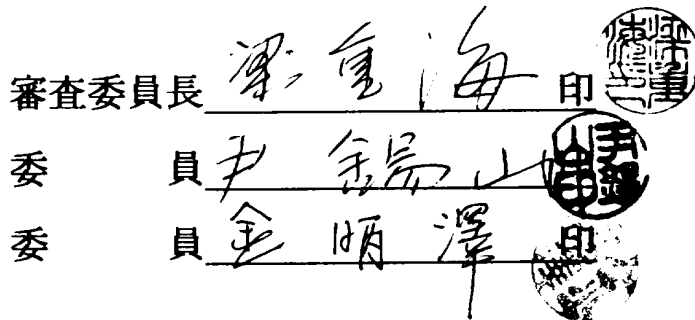 審査委員長 梁重海 印
委員 尹錫山
委員 金明澤 印